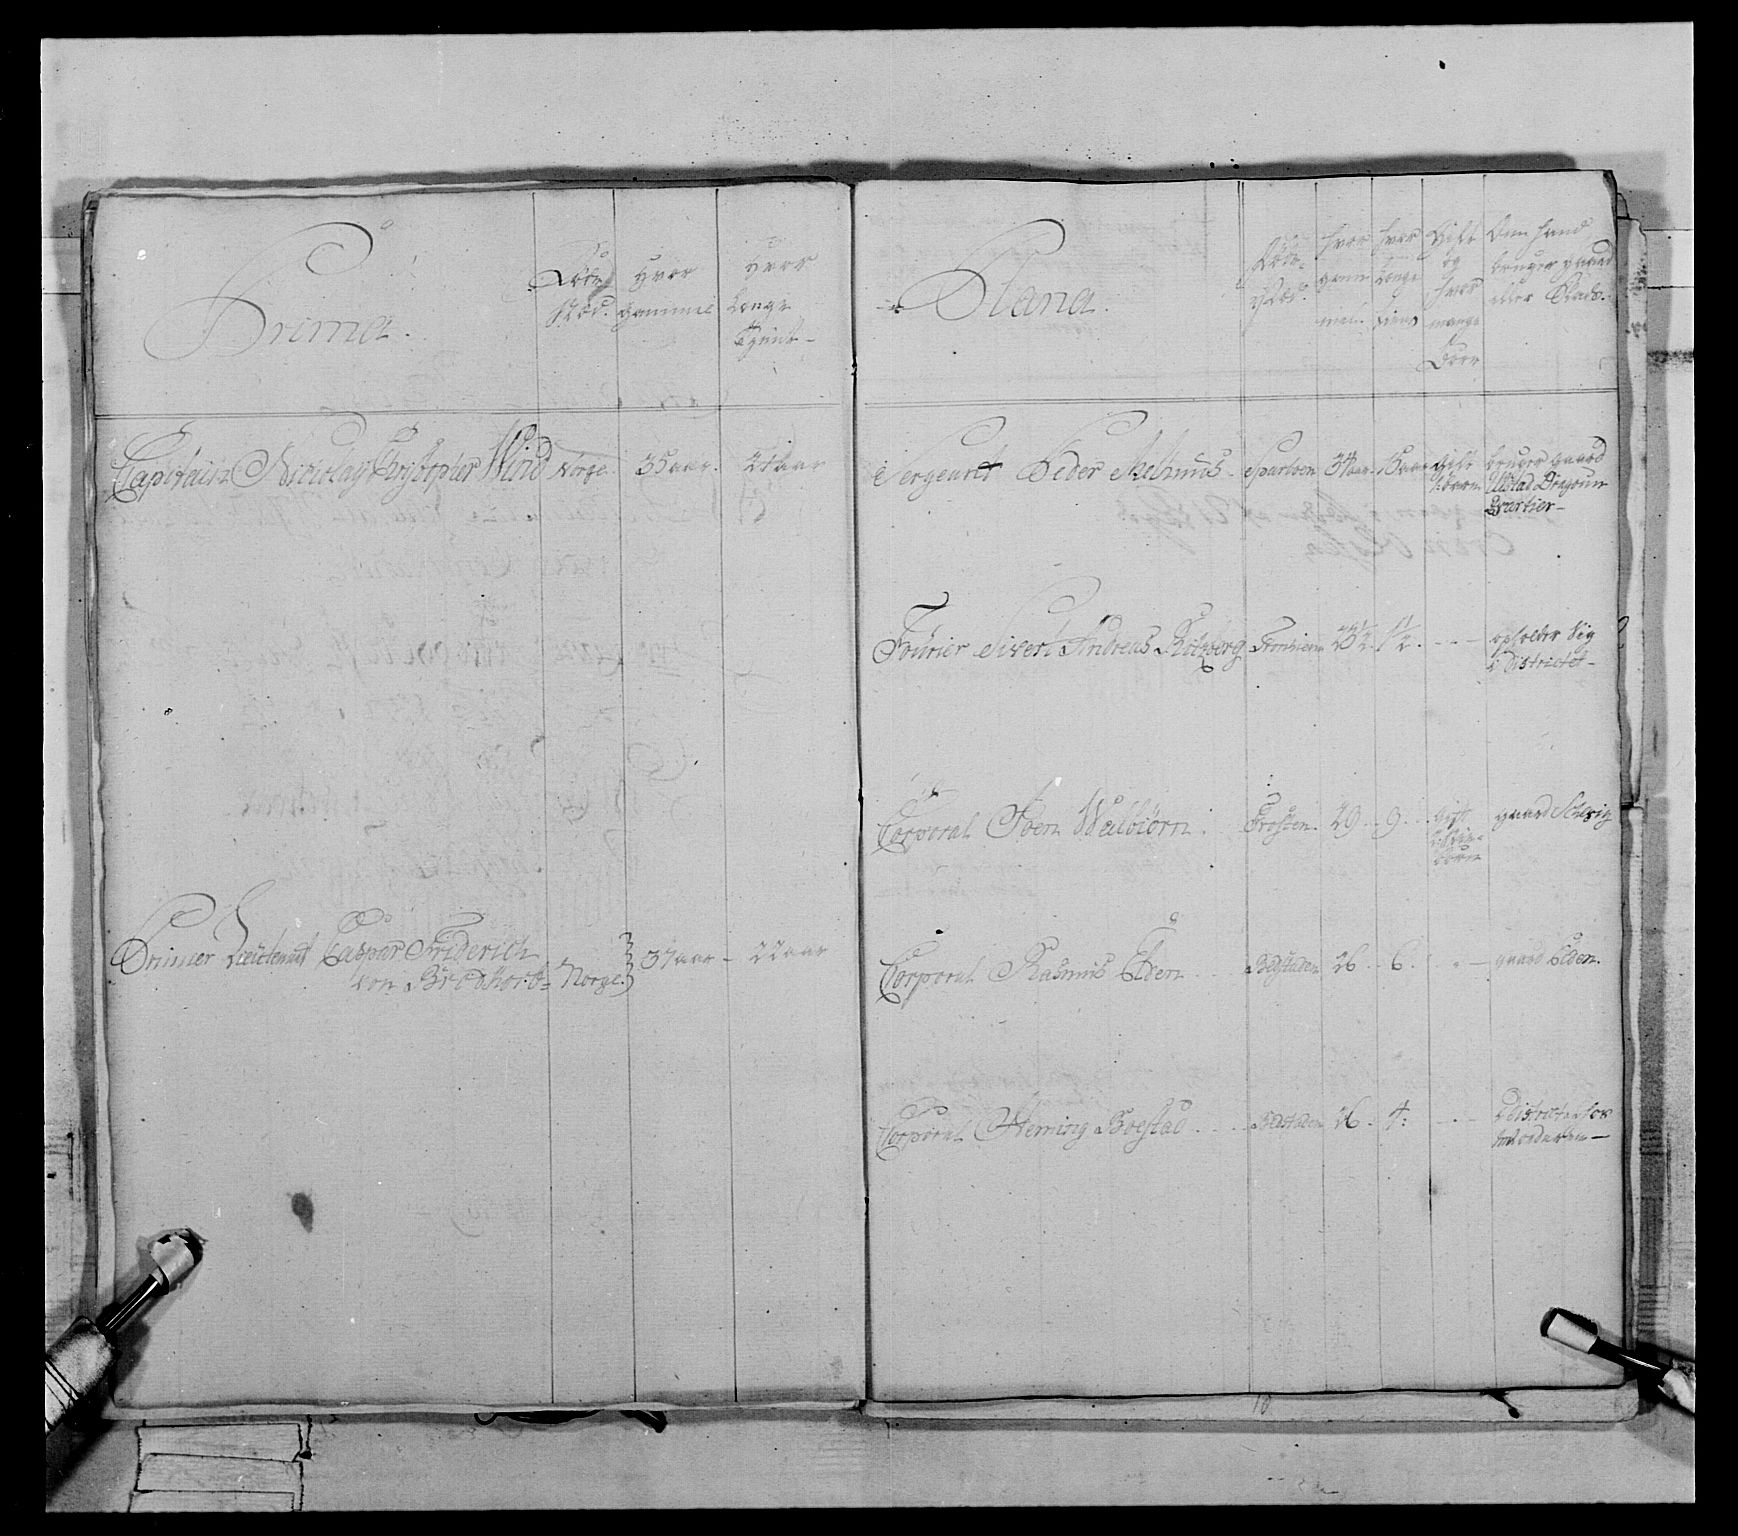 Prima.
Föde
Stæd.
Hvor
gammel
Hvor
Længe
Tient
Capitain Nicolay Christopher Wind Norge. 35 aar. 21 aar
Primier Lieutenant Caspar Friderich
von Brochor: Norge. 37 aar 22 aar
Plana.
Föde
Stæd.
hvor
gam
mel
hvor
Længe
tient
Gift
og
hvor
mange
Börn
Om hand
bruger gaard
eller Plads.
Sergeant Peder Rasmus Sparboen 37 aar 18 aar Gift
börn
bruger gaard
Ulstad Dragoun
Qvarteer
Fourier Sivert Andreas Rotzberg Tronhiem 23½ 1½
opholder Sig
i Districtet
Corporal Joen Weilbiörn. Frosten. 29 9. Gift
börn
gaard
Corporal Rasmus Elden Bedstaden 26 6.
gaard Elden.
Corporal Heming Boestad Bedstaden 26. 4:
i Districtet hos
moderen
10